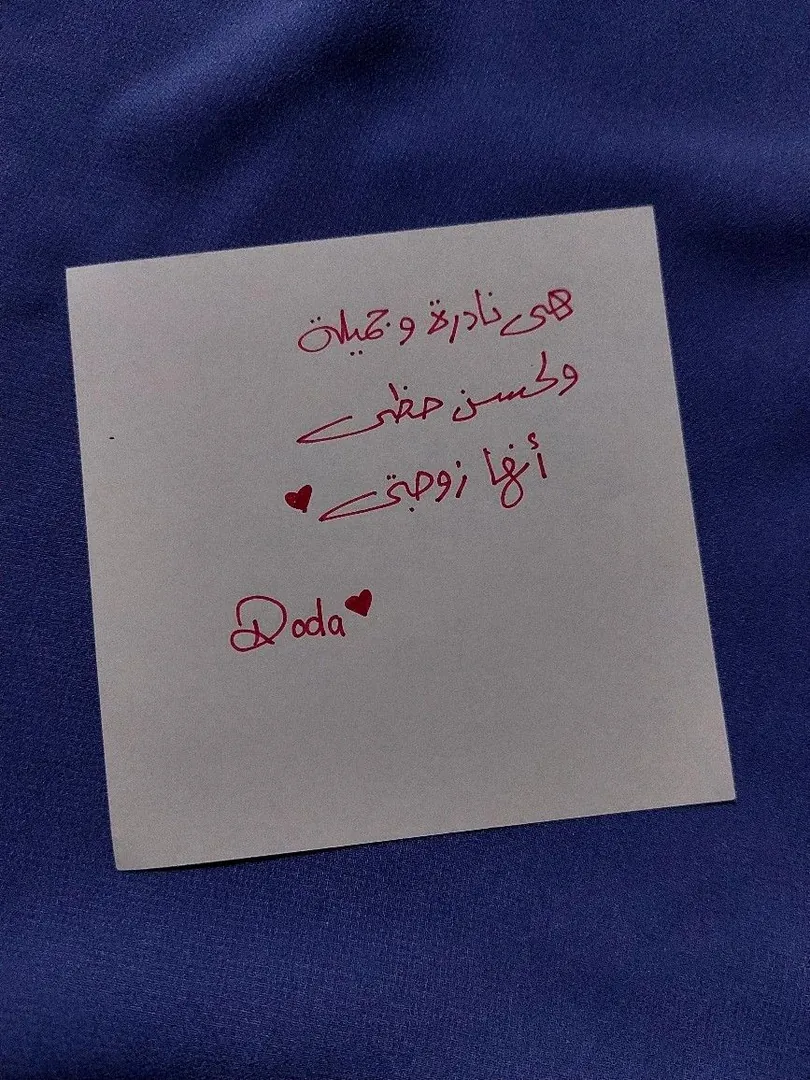 هى نادرة و جميلة
ولحسن حظى
أنها زوجتى ♥
Doda ♥